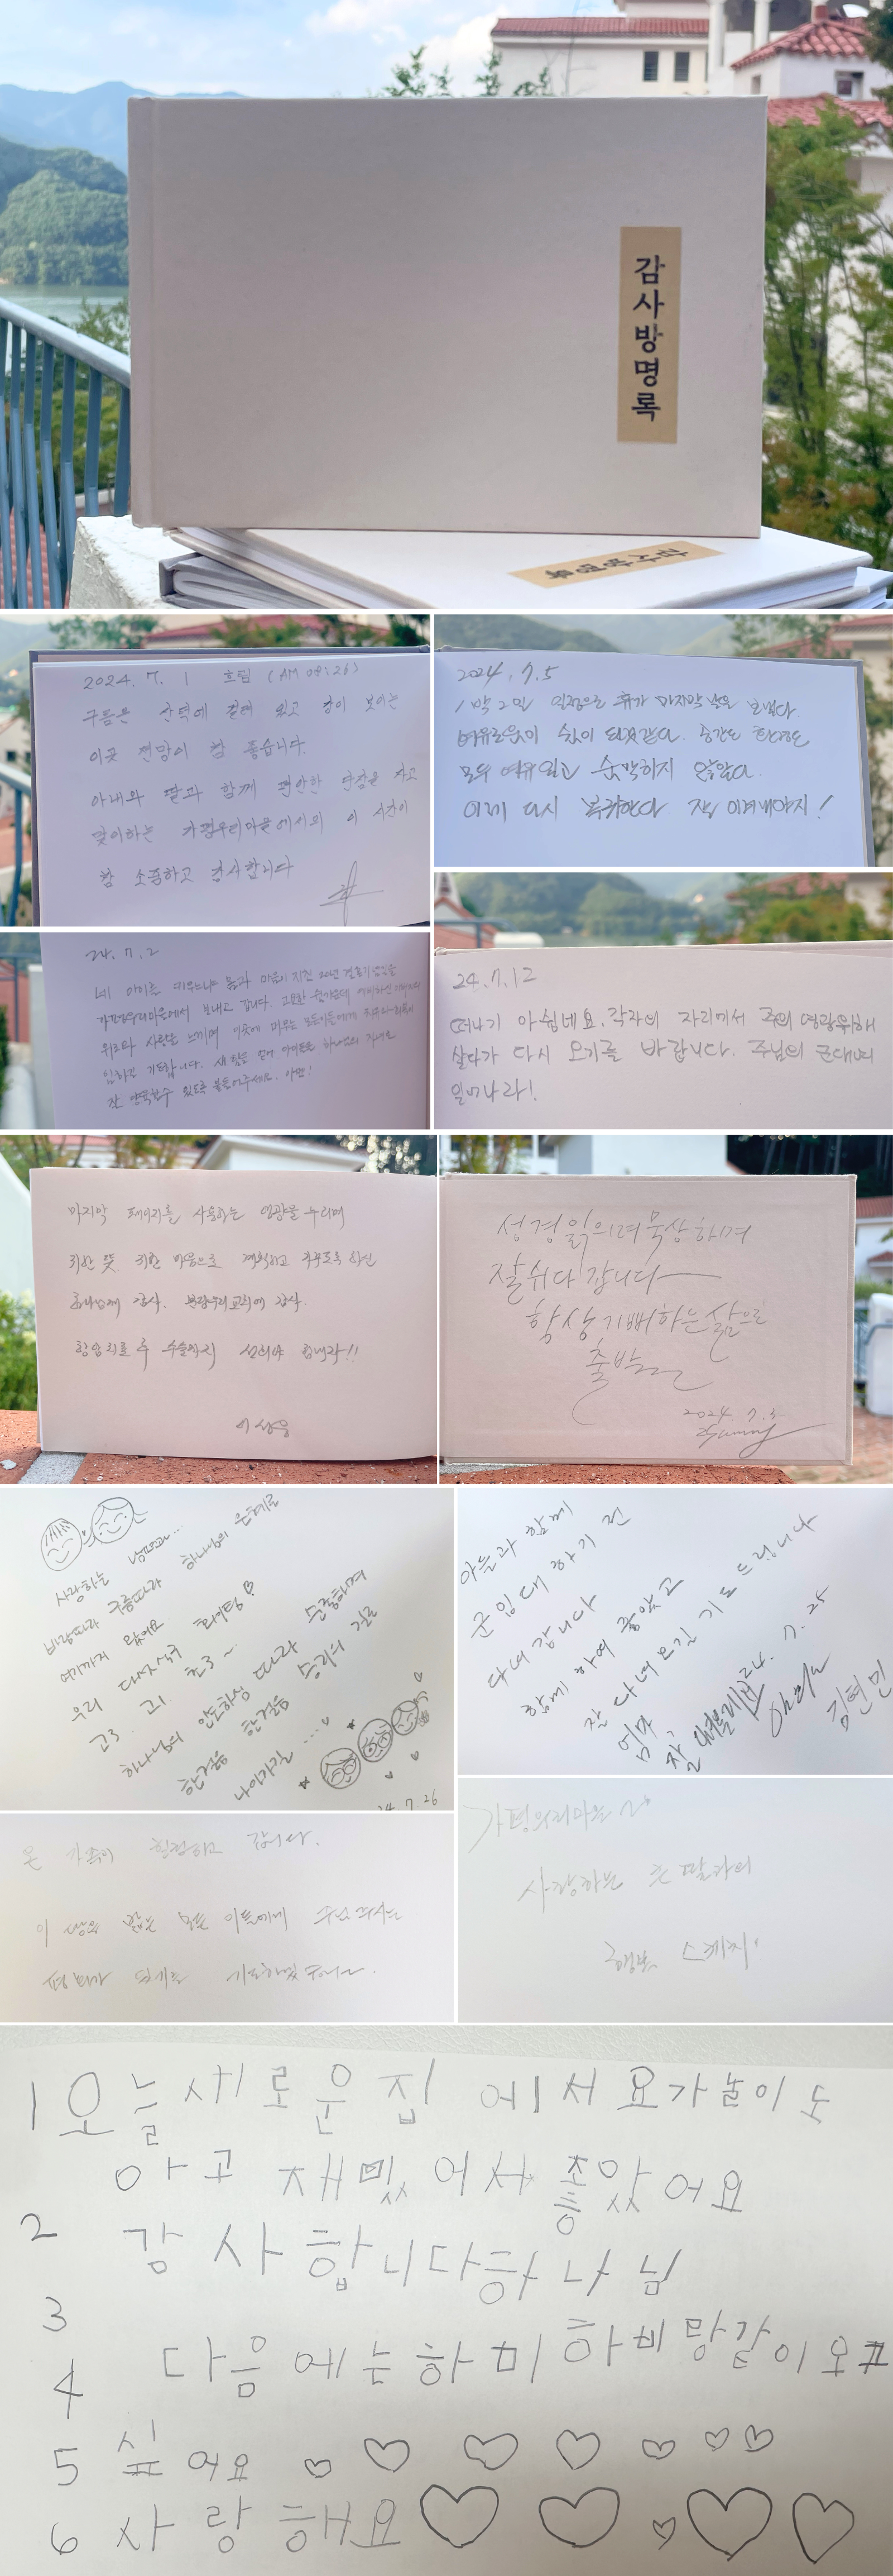 감사방명록
감사방명록
2024. 7. 1 흐림 (AM 08:26)
구름은 산턱에 걸려 있고 강이 보이는
이곳 전망이 참 좋습니다.
아내와 딸과 함께 편안한 단잠을 자고
맞이하는 가평우리마을에서의 이 시간이
참 소중하고 감사합니다
2024. 7. 5
1박 2일 일정으로 휴가 마지막 날을 보냈다.
여유로움이 쉼이 되었같다. 공간도 환경도
모두 여유있고 숨막히지 않았다.
이제 다시 복귀한다 잘 이겨내야지!
24. 7. 2
네 아이를 키우느라 몸과 마음이 지친 20년 결혼기념일을
가평우리마을에서 보내고 갑니다. 고요한 숲가운데 예비하신
위로와 사랑을 느끼며 이곳에 머무는 모든이들에게
임하길 기도합니다. 새 힘을 얻어 아이들을 하나님의 자녀로
잘 양육할수 있도록 붙들어주세요. 아멘!
24. 7. 12
떠나기 아쉽네요. 각자의 자리에서 주의 영광위해
살다가 다시 오기를 바랍니다. 주님의 군대여
일어나라!
마지막 페이지를 사용하는 영광을 누리며
귀한 뜻 귀한 마음으로 계획하고 가꾸도록 하신
하나님께 감사. 분당우리교회에 감사.
항암치료 후 수술까지 힘내라!!
이상웅
성경읽의며 묵상하며
잘쉬다 갑니다
항상 기뻐하는 삶으로
출발
2024 7. 3
사랑하는 남편과...
바람따라 구름따라 하나님의 은혜로
여기까지 왔어요.
우리 다섯식구 화이팅!♡
고3 고1 초3~
하나님의 인도하심 따라 순종하며
한걸음 한걸음 승리의 길로
나아가길 ...♡
24. 7. 26
아들과 함께
군입대 하기 전
다녀 갑니다
함께 하여 좋았고
잘 다녀 오길 기도드립니다
24. 7. 25
엄마, 아빠
김현민
온 가족이 힐링하고 갑니다.
이 땅을 밟는 모든 이들에게 주님 주시는
평화가 있기를 기도하겠습니다.
가평우리마을
사랑하는 큰 딸과의
행복 스케치!
1 오늘새로운집에서요가놀이도
아고 재밌어서 좋았어요
2 감사합니다하나님
3
4 다음에는하미하비랑같이오고
5 싶어요 ♡ ♡ ♡ ♡ ♡ ♡ ♡
6 사랑해요♡ ♡ ♡ ♡ ♡